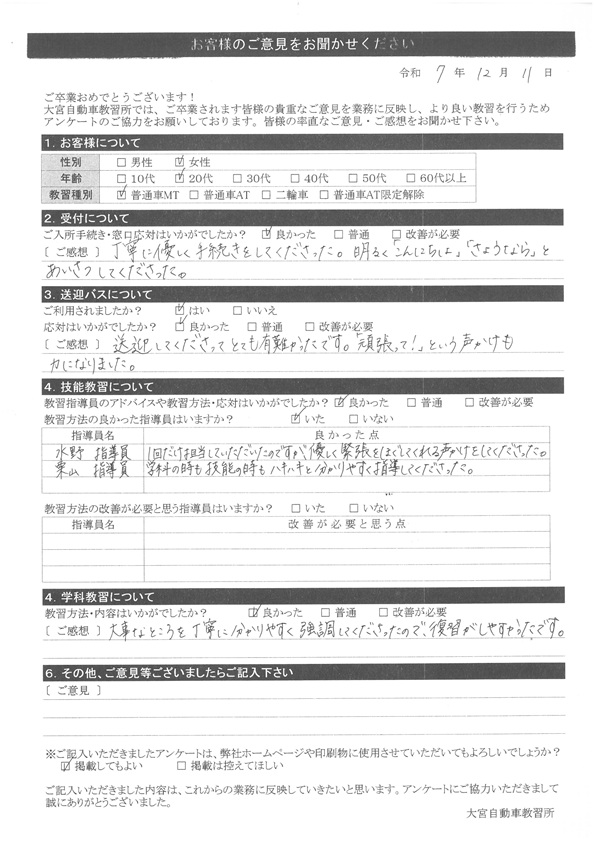 お客様のご意見をお聞かせください
令和 7 年 12 月 11 日
ご卒業おめでとうございます！
大宮自動車教習所では、ご卒業されます皆様の貴重なご意見を業務に反映し、より良い教習を行うため
アンケートのご協力をお願いしております。皆様の率直なご意見・ご感想をお聞かせ下さい。
1. お客様について
性別 □ 男性 ☑ 女性
年齢 □ 10代 ☑ 20代 □ 30代 □ 40代 □ 50代 □ 60代以上
教習種別 ☑ 普通車MT □ 普通車AT □ 二輪車 □ 普通車AT限定解除
2. 受付について
ご入所手続き・窓口応対はいかがでしたか？ ☑ 良かった □ 普通 □ 改善が必要
［ ご感想 ］ 丁寧に優しく手続きをしてくださった。明るく「こんにちは」「さようなら」と
あいさつしてくださった。
3. 送迎バスについて
ご利用されましたか？ ☑ はい □ いいえ
応対はいかがでしたか？ ☑ 良かった □ 普通 □ 改善が必要
［ ご感想 ］ 送迎してくださってとても有難かったです。「頑張って！」という声かけも
力になりました。
4. 技能教習について
教習指導員のアドバイスや教習方法・応対はいかがでしたか？ ☑ 良かった □ 普通 □ 改善が必要
教習方法の良かった指導員はいますか？ ☑ いた □ いない
指導員名 良かった点
水野 指導員 1回だけ担当していただいたのですが、優しく緊張をほぐしてくれる声かけをしてくださった。
栗山 指導員 学科の時も技能の時もハキハキと分かりやすく指導してくださった。
教習方法の改善が必要と思う指導員はいますか？ □ いた □ いない
指導員名 改善が必要と思う点
4. 学科教習について
教習方法・内容はいかがでしたか？ ☑ 良かった □ 普通 □ 改善が必要
［ ご感想 ］ 大事なところを丁寧に分かりやすく強調してくださったので、復習がしやすかったです。
6. その他、ご意見等ございましたらご記入下さい
［ ご意見 ］
※ご記入いただきましたアンケートは、弊社ホームページや印刷物に使用させていただいてもよろしいでしょうか？
☑ 掲載してもよい □ 掲載は控えてほしい
ご記入いただきました内容は、これからの業務に反映していきたいと思います。アンケートにご協力いただきまして
誠にありがとうございました。
大宮自動車教習所